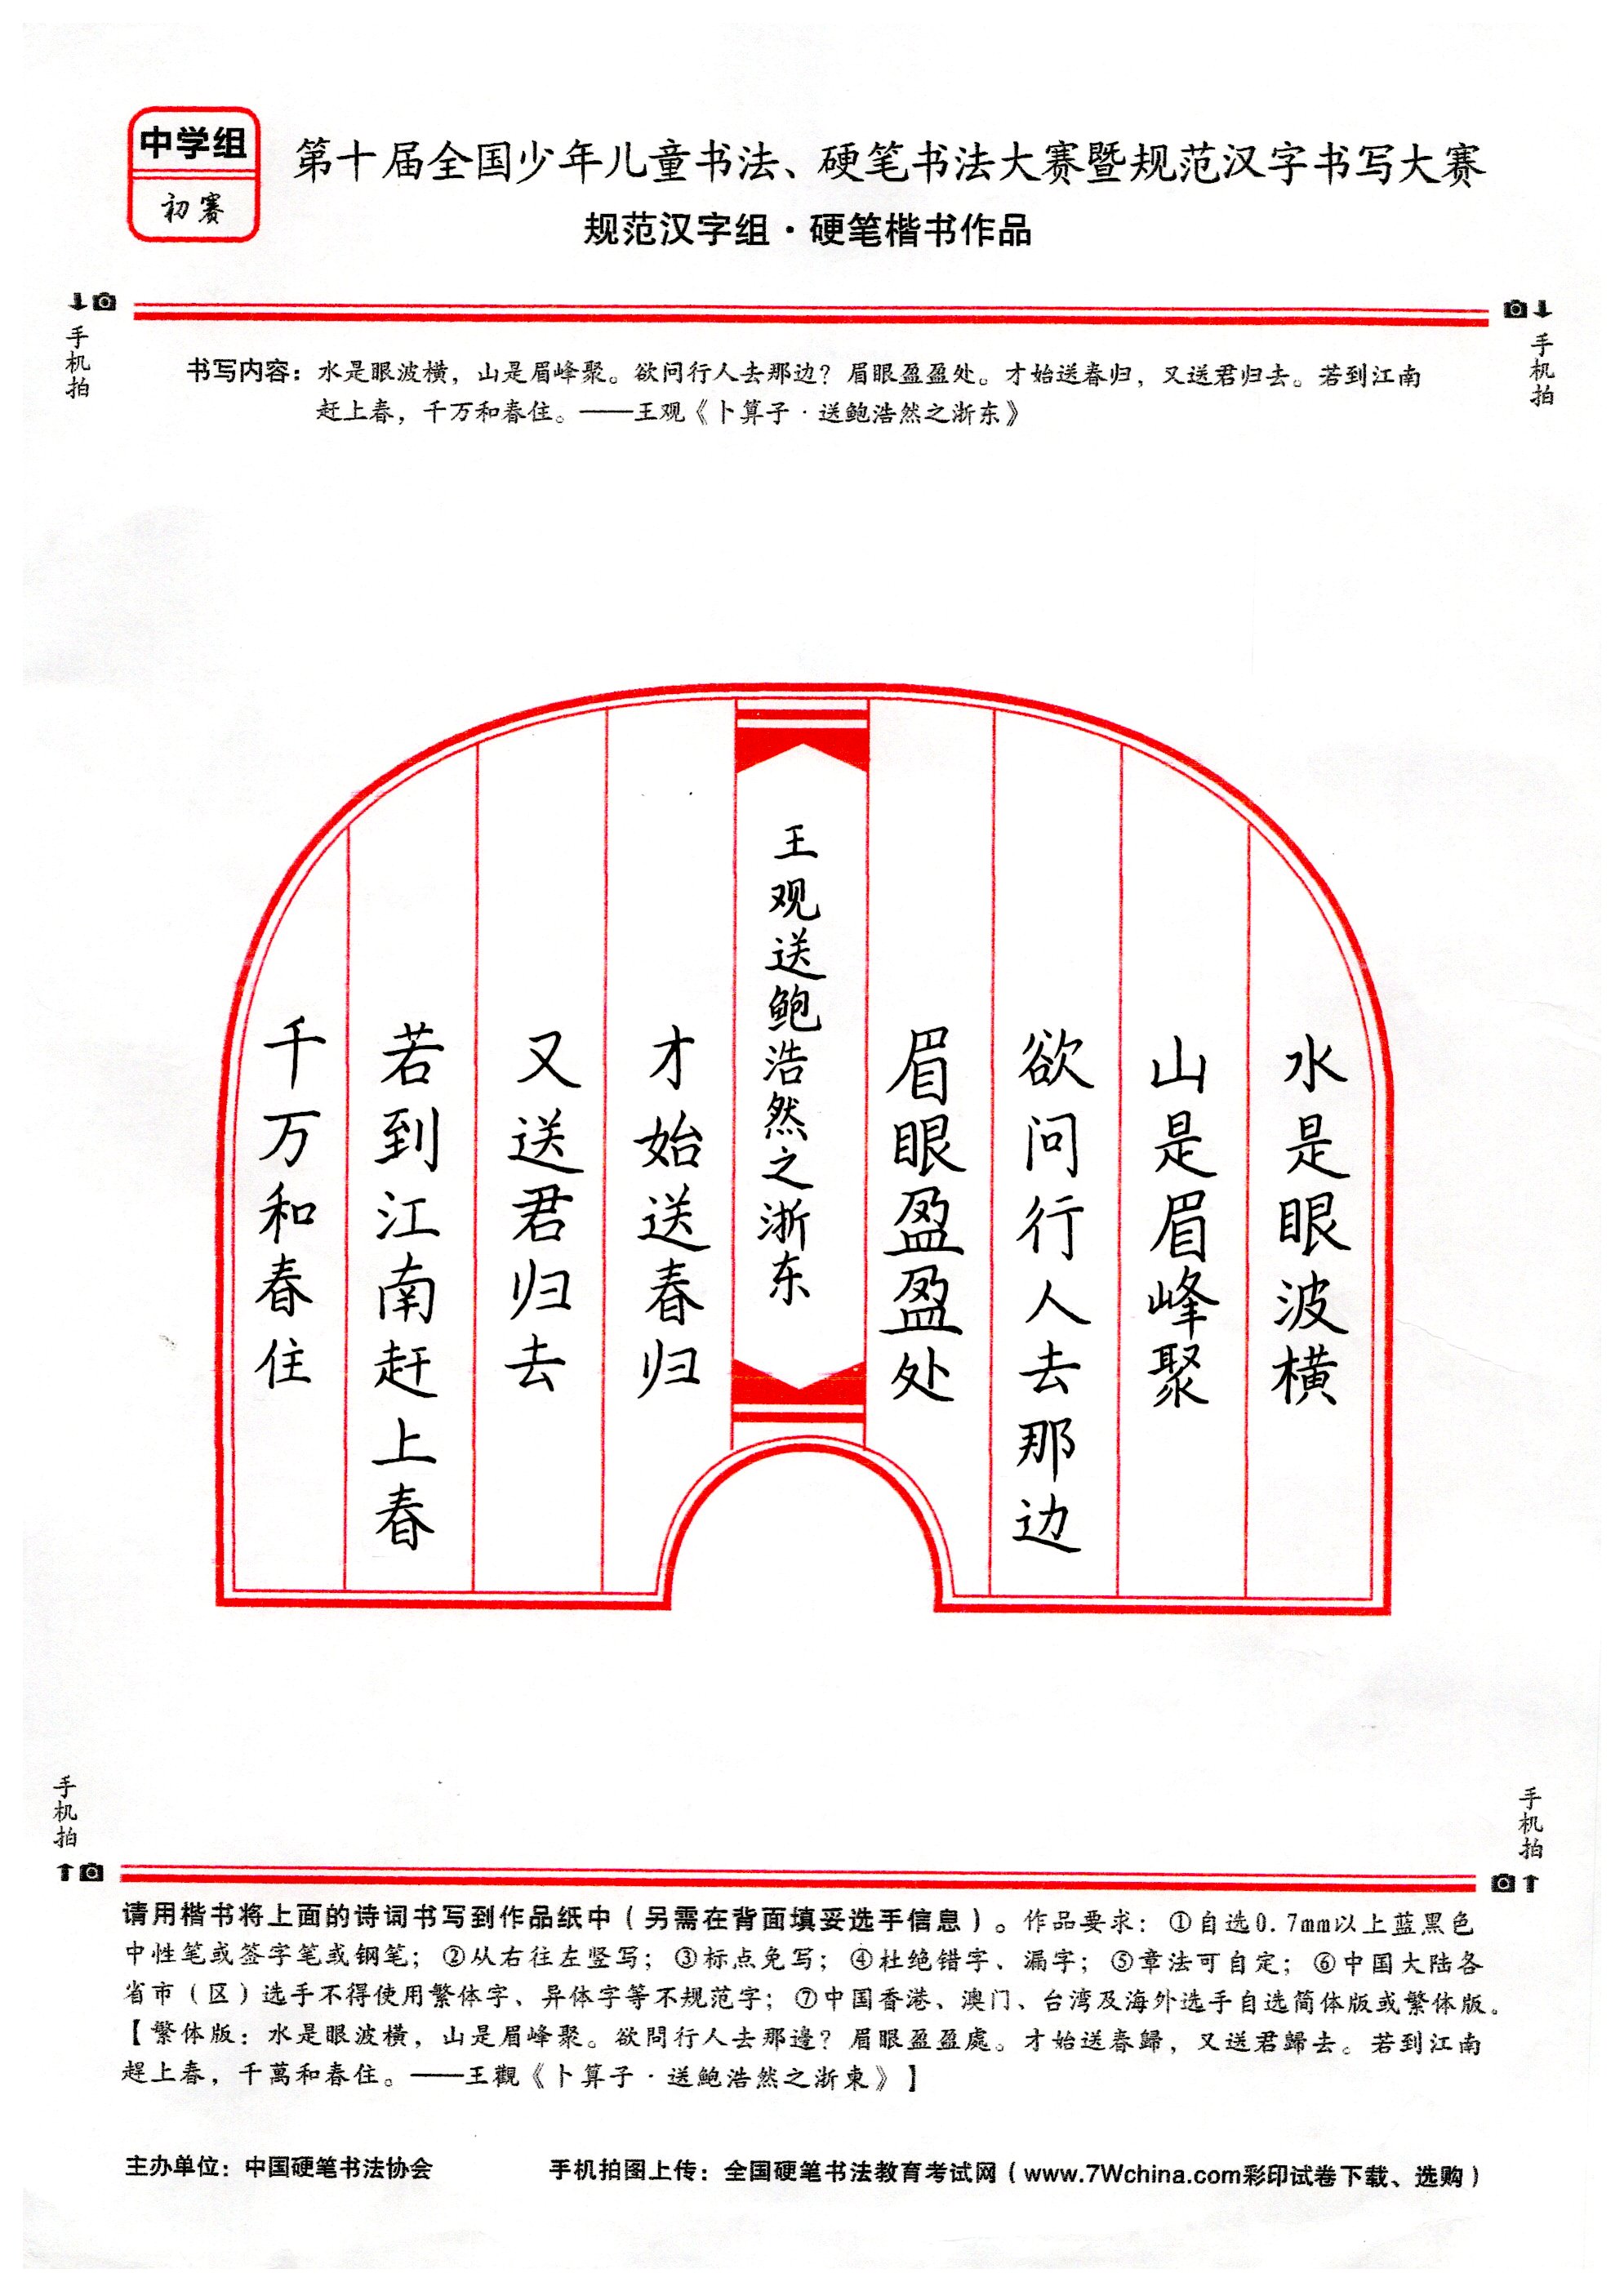 中学组
初赛
第十届全国少年儿童书法、硬笔书法大赛暨规范汉字书写大赛
规范汉字组·硬笔楷书作品
手机拍
手机拍
书写内容：水是眼波横，山是眉峰聚。欲问行人去那边？眉眼盈盈处。才始送春归，又送君归去。若到江南
赶上春，千万和春住。——王观《卜算子·送鲍浩然之浙东》
水是眼波横
山是眉峰聚
欲问行人去那边
眉眼盈盈处
王观送鲍浩然之浙东
才始送春归
又送君归去
若到江南赶上春
千万和春住
手机拍
手机拍
请用楷书将上面的诗词书写到作品纸中（另需在背面填妥选手信息）。作品要求：①自选0.7mm以上蓝黑色
中性笔或签字笔或钢笔；②从右往左竖写；③标点免写；④杜绝错字、漏字；⑤章法可自定；⑥中国大陆各
省市（区）选手不得使用繁体字、异体字等不规范字；⑦中国香港、澳门、台湾及海外选手自选简体版或繁体版。
【繁体版：水是眼波橫，山是眉峰聚。欲問行人去那邊？眉眼盈盈處。才始送春歸，又送君歸去。若到江南
趕上春，千萬和春住。——王觀《卜算子·送鮑浩然之浙東》】
主办单位：中国硬笔书法协会
手机拍图上传：全国硬笔书法教育考试网（www.7Wchina.com彩印试卷下载、选购）